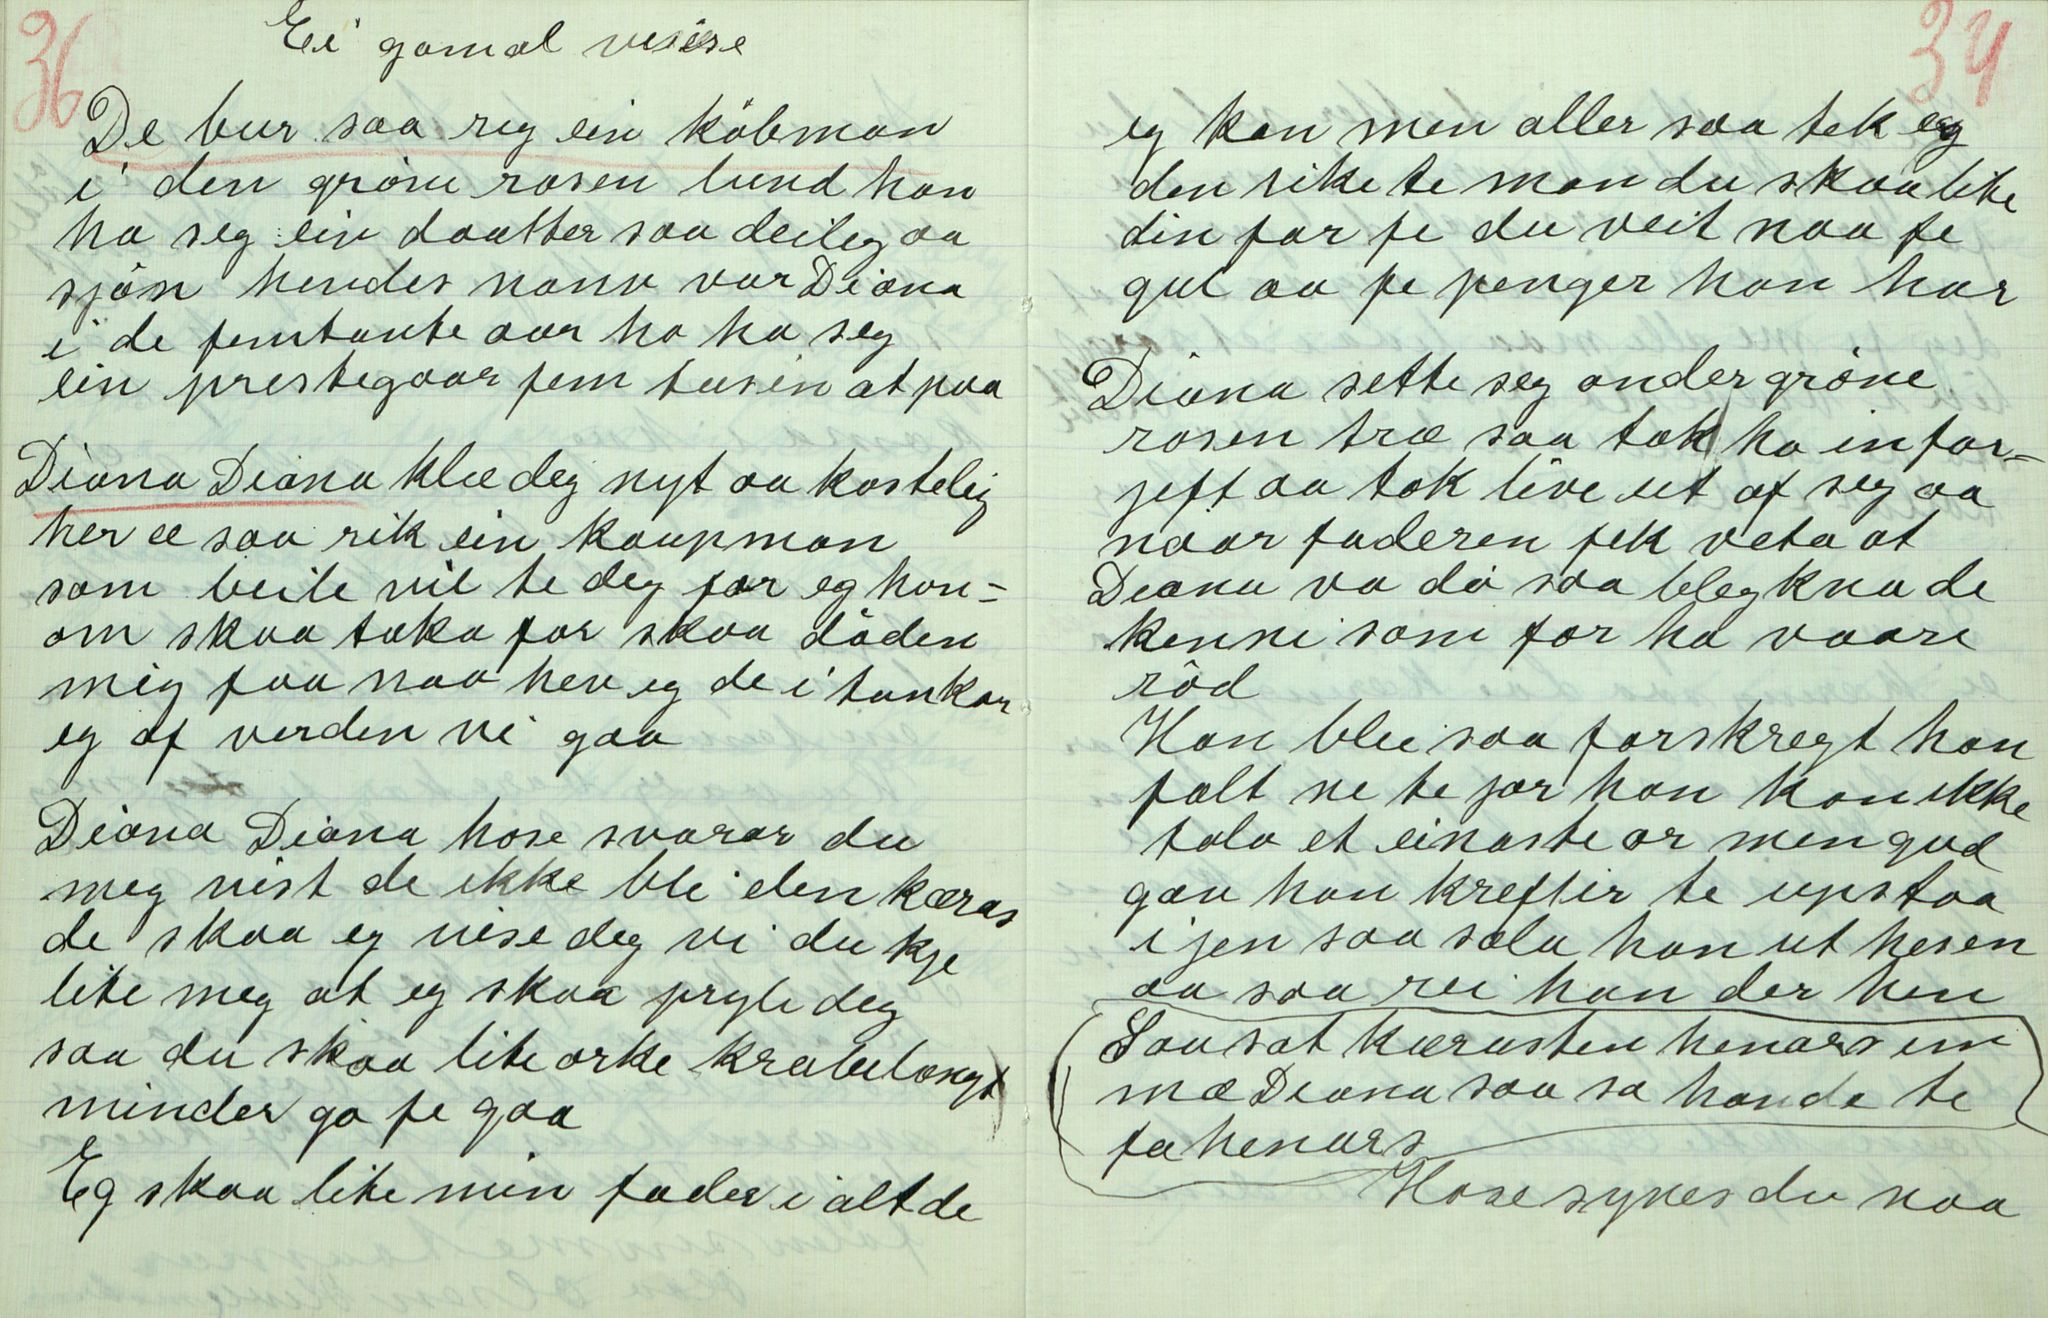 36
Ei gamal viise
De bur saa rig ein köbman
i den gröne rosen lund han
ha seg ein daatter saa deileg aa
sjöm hendes navn var Diana
i de femtante aar ho ha seg
ein prestegaar fem tusen at paa
Diana Diana klæ deg nyt aa kostelig
her ee saa rik ein kaupman
som beile vil te deg for eg hon=
om skaa taka for skaa döden
mig faa naa hev eg de i tankar
eg af verden vi gaa
Diana Diana hose svarar du
meg vist de ikke bli den kæras
de skaa eg vise deg vi du kje
lite meg at eg skaa pryle deg
saa du skaa lite orke
minder ga fe gaa
Eg skaa lite min fader i alt de
34
eg kan men aller saa tek eg
den rike te man du skaa lite
din far fe du veit naa fe
gul aa fe penger han har
Diana sette seg onder gröne
rosen træ saa tok ho in for=
jeft aa tok live ut af seg aa
naar faderen fek veta at
Diana va dö saa blegkna de
kenne som för ha vaare
röd
Han blei saa forskregt han
falt ne te jor han kan ikke
tala et einaste or men gud
gav han krefter te upstaa
ijen saa sala han ut hesen
aa saa rei han der hen
Saa sat kærasten henars im
mæ Diana saa sa han de te
fa henars
Hose synes du naa